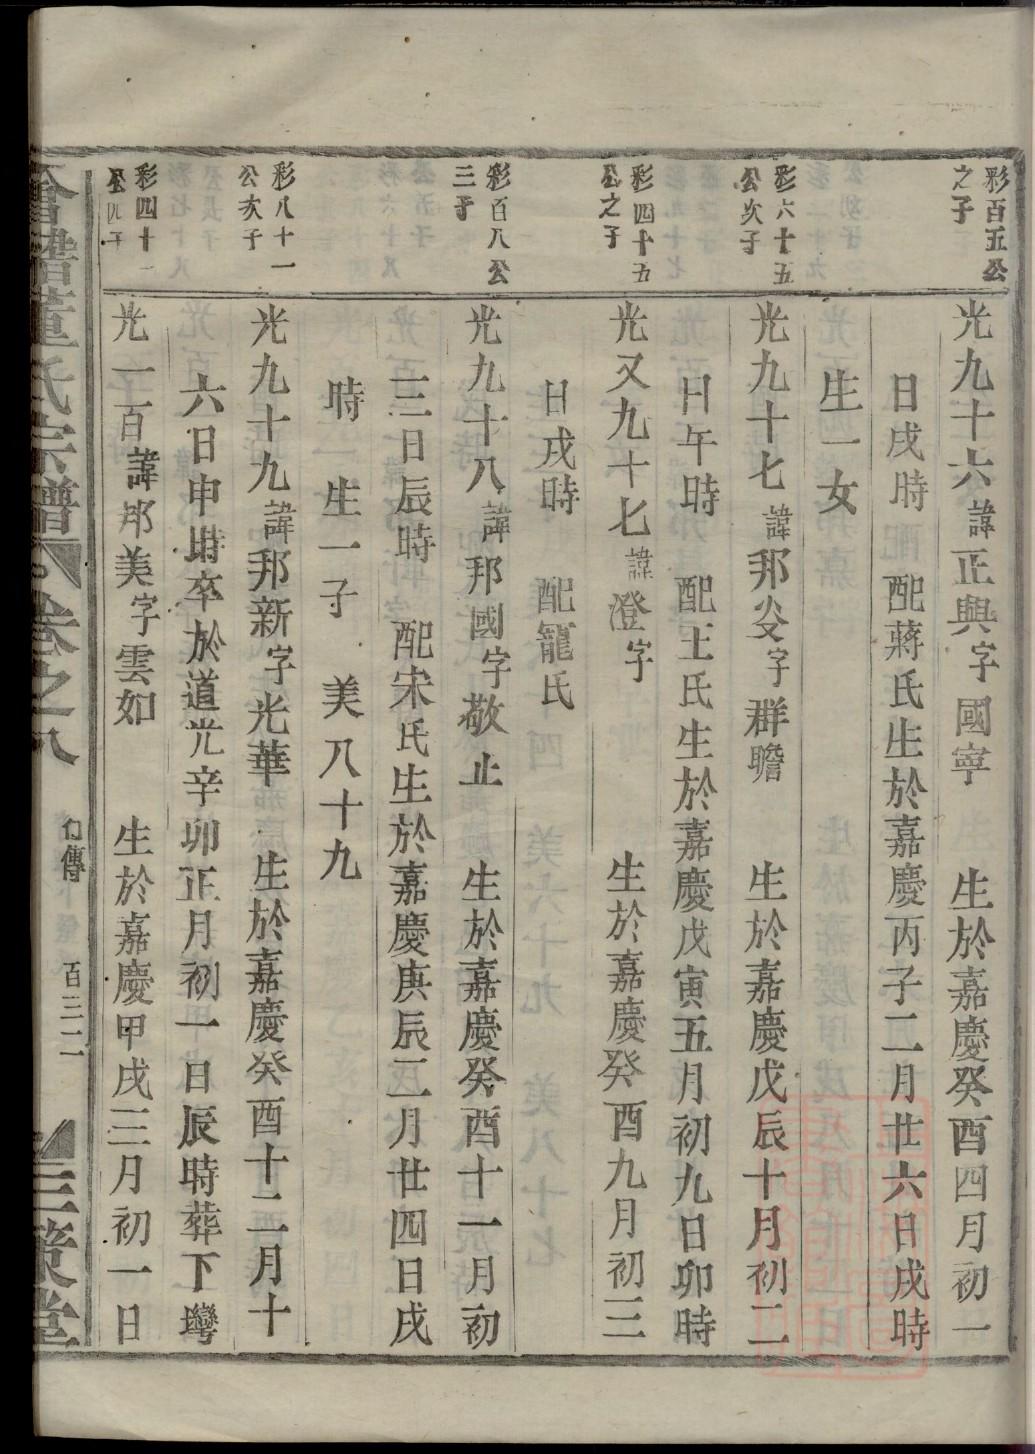 彩百五公之子
光九十六諱正興字國寧 生於嘉慶癸酉四月初一
日戌時 配蔣氏生於嘉慶丙子二月廿六日戌時
生一女
彩六十五公次子
光九十七諱邦姿字群瞻 生於嘉慶戊辰十月初二
日午時 配王氏生於嘉慶戊寅五月初九日卯時
彩四十五公之子
光又九十七諱澄字 生於嘉慶癸酉九月初三
日戌時 配龍氏
彩百八公三子
光九十八諱邦國字敬止 生於嘉慶癸酉十一月初
三日辰時 配宋氏生於嘉慶庚辰二月廿四日戌
時 生一子 美八十九
彩八十一公次子
光九十九諱邦新字光華 生於嘉慶癸酉十二月十
六日申時卒於道光辛卯正月初一日辰時葬下灣
彩四十一公四子
光一百諱邦美字雲如 生於嘉慶甲戌三月初一日
會稽董氏宗譜 卷之八 傳 百三二 三策堂